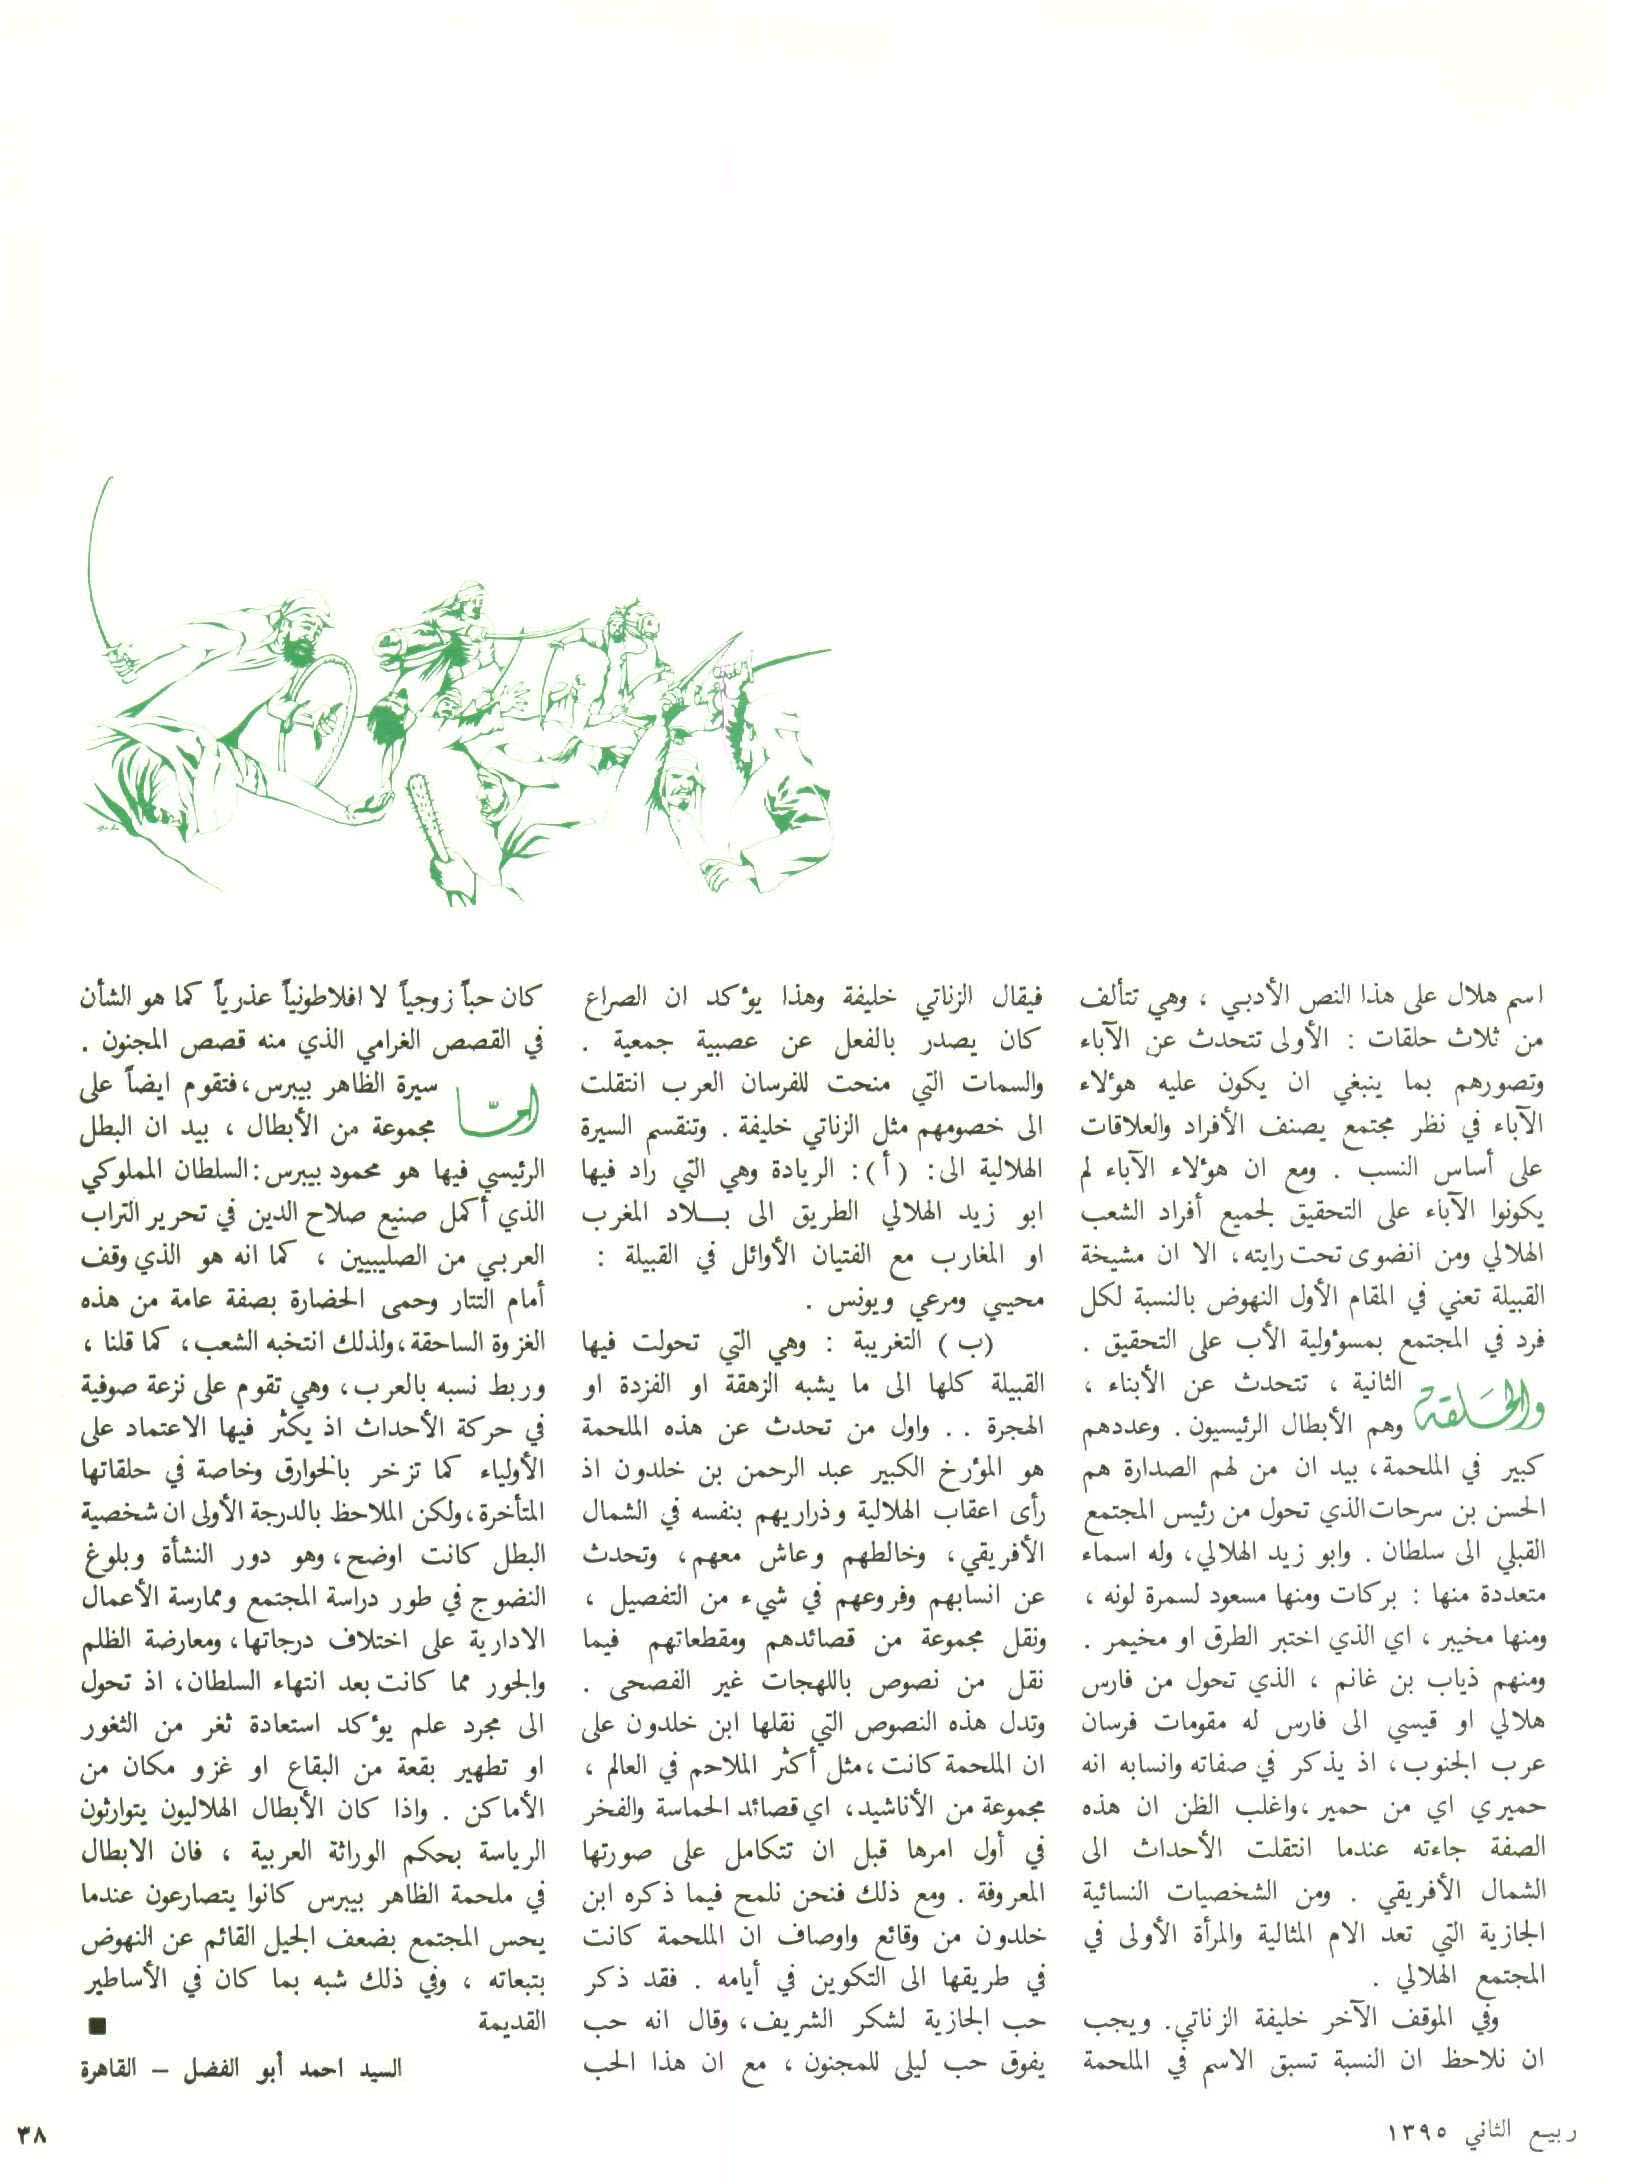 اسم هلال على هذا النص الأدبي ، وهي تتألف
من ثلاث حلقات : الأولى تتحدث عن الآباء
وتصورهم بما ينبغي ان يكون عليه هؤلاء
الآباء في نظر مجتمع يصنف الأفراد والعلاقات
على أساس النسب . ومع ان هؤلاء الآباء لم
يكونوا الآباء على التحقيق لجميع أفراد الشعب
الهلالي ومن انضوى تحت رايته، الا ان مشيخة
القبيلة تعني في المقام الأول النهوض بالنسبة لكل
فرد في المجتمع بمسؤولية الأب على التحقيق .
والحلقة الثانية ، تتحدث عن الأبناء ،
وهم الأبطال الرئيسيون . وعددهم
كبير في الملحمة، بيد ان من لهم الصدارة هم
الحسن بن سرحات الذي تحول من رئيس المجتمع
القبلي الى سلطان . وابو زيد الهلالي، وله اسماء
متعددة منها : بركات ومنها مسعود لسمرة لونه ،
ومنها مخيبر ، اي الذي اختبر الطرق او مخيمر .
ومنهم ذياب بن غانم ، الذي تحول من فارس
هلالي او قيسي الى فارس له مقومات فرسان
عرب الجنوب، اذ يذكر في صفاته وانسابه انه
حميري اي من حمير ،واغلب الظن ان هذه
الصفة جاءته عندما انتقلت الأحداث الى
الشمال الأفريقي . ومن الشخصيات النسائية
الجازية التي تعد الام المثالية والمرأة الأولى في
المجتمع الهلالي .
وفي الموقف الآخر خليفة الزناتي. ويجب
ان نلاحظ ان النسبة تسبق الاسم في الملحمة
فيقال الزناتي خليفة وهذا يؤكد ان الصراع
كان يصدر بالفعل عن عصبية جمعية .
والسمات التي منحت للفرسان العرب انتقلت
الى خصومهم مثل الزناتي خليفة . وتنقسم السيرة
الهلالية الى: (أ): الريادة وهي التي راد فيها
ابو زيد الهلالي الطريق الى بـلاد المغرب
او المغارب مع الفتيان الأوائل في القبيلة :
محيي ومرعي ويونس .
(ب) التغريبة : وهي التي تحولت فيها
القبيلة كلها الى ما يشبه الزهقة او الفزدة او
الهجرة .. واول من تحدث عن هذه الملحمة
هو المؤرخ الكبير عبد الرحمن بن خلدون اذ
رأى اعقاب الهلالية وذراريهم بنفسه في الشمال
الأفريقي، وخالطهم وعاش معهم، وتحدث
عن انسابهم وفروعهم في شيء من التفصيل ،
ونقل مجموعة من قصائدهم ومقطعاتهم فيما
نقل من نصوص باللهجات غير الفصحى .
وتدل هذه النصوص التي نقلها ابن خلدون على
ان الملحمة كانت ،مثل أكثر الملاحم في العالم ،
مجموعة من الأناشيد، اي قصائد الحماسة والفخر
في أول امرها قبل ان تتكامل على صورتها
المعروفة . ومع ذلك فنحن نلمح فيما ذكره ابن
خلدون من وقائع واوصاف ان الملحمة كانت
في طريقها الى التكوين في أيامه . فقد ذكر
حب الجازية لشكر الشريف، وقال انه حب
يفوق حب ليلى للمجنون ، مع ان هذا الحب
كان حباً زوجياً لا افلاطونياً عذرياً كما هو الشأن
في القصص الغرامي الذي منه قصص المجنون .
امّا سيرة الظاهر بيبرس ،فتقوم ايضاً على
مجموعة من الأبطال ، بيد ان البطل
الرئيسي فيها هو محمود بيبرس :السلطان المملوكي
الذي أكمل صنيع صلاح الدين في تحرير التراب
العربي من الصليبيين ، كما انه هو الذي وقف
أمام التتار وحمى الحضارة بصفة عامة من هذه
الغزوة الساحقة ،ولذلك انتخبه الشعب، كما قلنا ،
وربط نسبه بالعرب، وهي تقوم على نزعة صوفية
في حركة الأحداث اذ يكثر فيها الاعتماد على
الأولياء كما تزخر بالخوارق وخاصة في حلقاتها
المتأخرة،ولكن الملاحظ بالدرجة الأولى ان شخصية
البطل كانت اوضح، وهو دور النشأة وبلوغ
النضوج في طور دراسة المجتمع وممارسة الأعمال
الادارية على اختلاف درجاتها، ومعارضة الظلم
والجور مما كانت بعد انتهاء السلطان، اذ تحول
الى مجرد علم يؤكد استعادة ثغر من الثغور
او تطهير بقعة من البقاع او غزو مكان من
الأماكن . واذا كان الأبطال الهلاليون يتوارثون
الرياسة بحكم الوراثة العربية ، فان الابطال
في ملحمة الظاهر بيبرس كانوا يتصارعون عندما
يحس المجتمع بضعف الجيل القائم عن النهوض
بتبعاته ، وفي ذلك شبه بما كان في الأساطير
القديمة ■
السيد احمد أبو الفضل – القاهرة
ربيع الثاني ١٣٩٥
٣٨